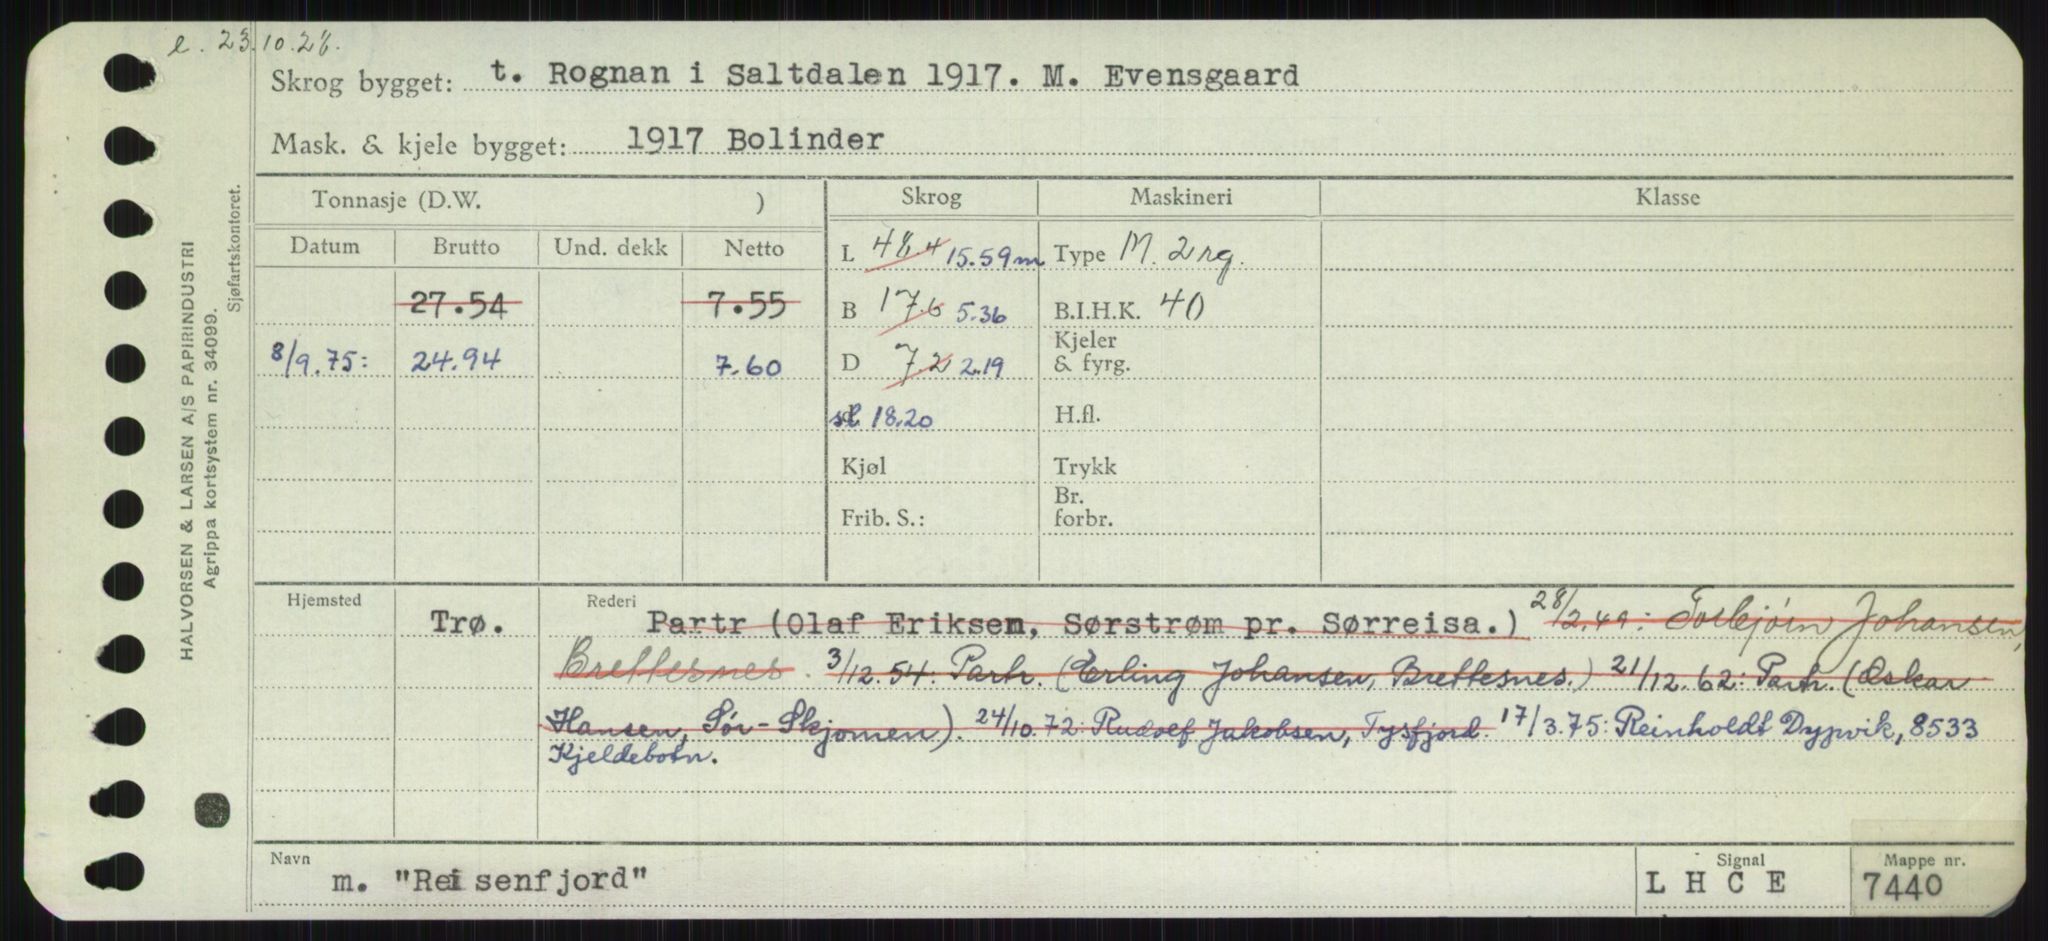 e. 23.10.26.
Skrog bygget: t. Rognan i Saltdalen 1917. M. Evensgaard
Mask. & kjele bygget: 1917 Bolinder
Tonnasje (D.W. ) Skrog Maskineri Klasse
Datum Brutto Und. dekk Netto
L 48.4 15.59m Type M. 2 rg.
27.54 7.55 B 17.6 5.36 B.I.H.K. 40
8/9.75: 24.94 7.60 D 7.2 2.19 Kjeler & fyrg.
sl. 18.20 H.fl.
Kjøl Trykk
Frib. S.: Br. forbr.
Hjemsted Trø. Rederi Partr (Olaf Eriksen, Sørstrøm pr. Sørreisa.) 28/2.49: Torbjørn Johansen,
Brettesnes. 3/12.54: Partr. (Erling Johansen, Brettesnes.) 21/12.62: Partr. (Oskar
Hansen, Sør-Skjomen). 24/10.72: Rudolf Jakobsen, Tysfjord. 17/3.75: Reinholdt Dypvik, 8533
Kjeldebotn.
Navn m. "Reisenfjord" Signal L H C E Mappe nr. 7440
HALVORSEN & LARSEN A/S PAPIRINDUSTRI
Agrippa kortsystem nr. 34099.
Sjøfartskontoret.